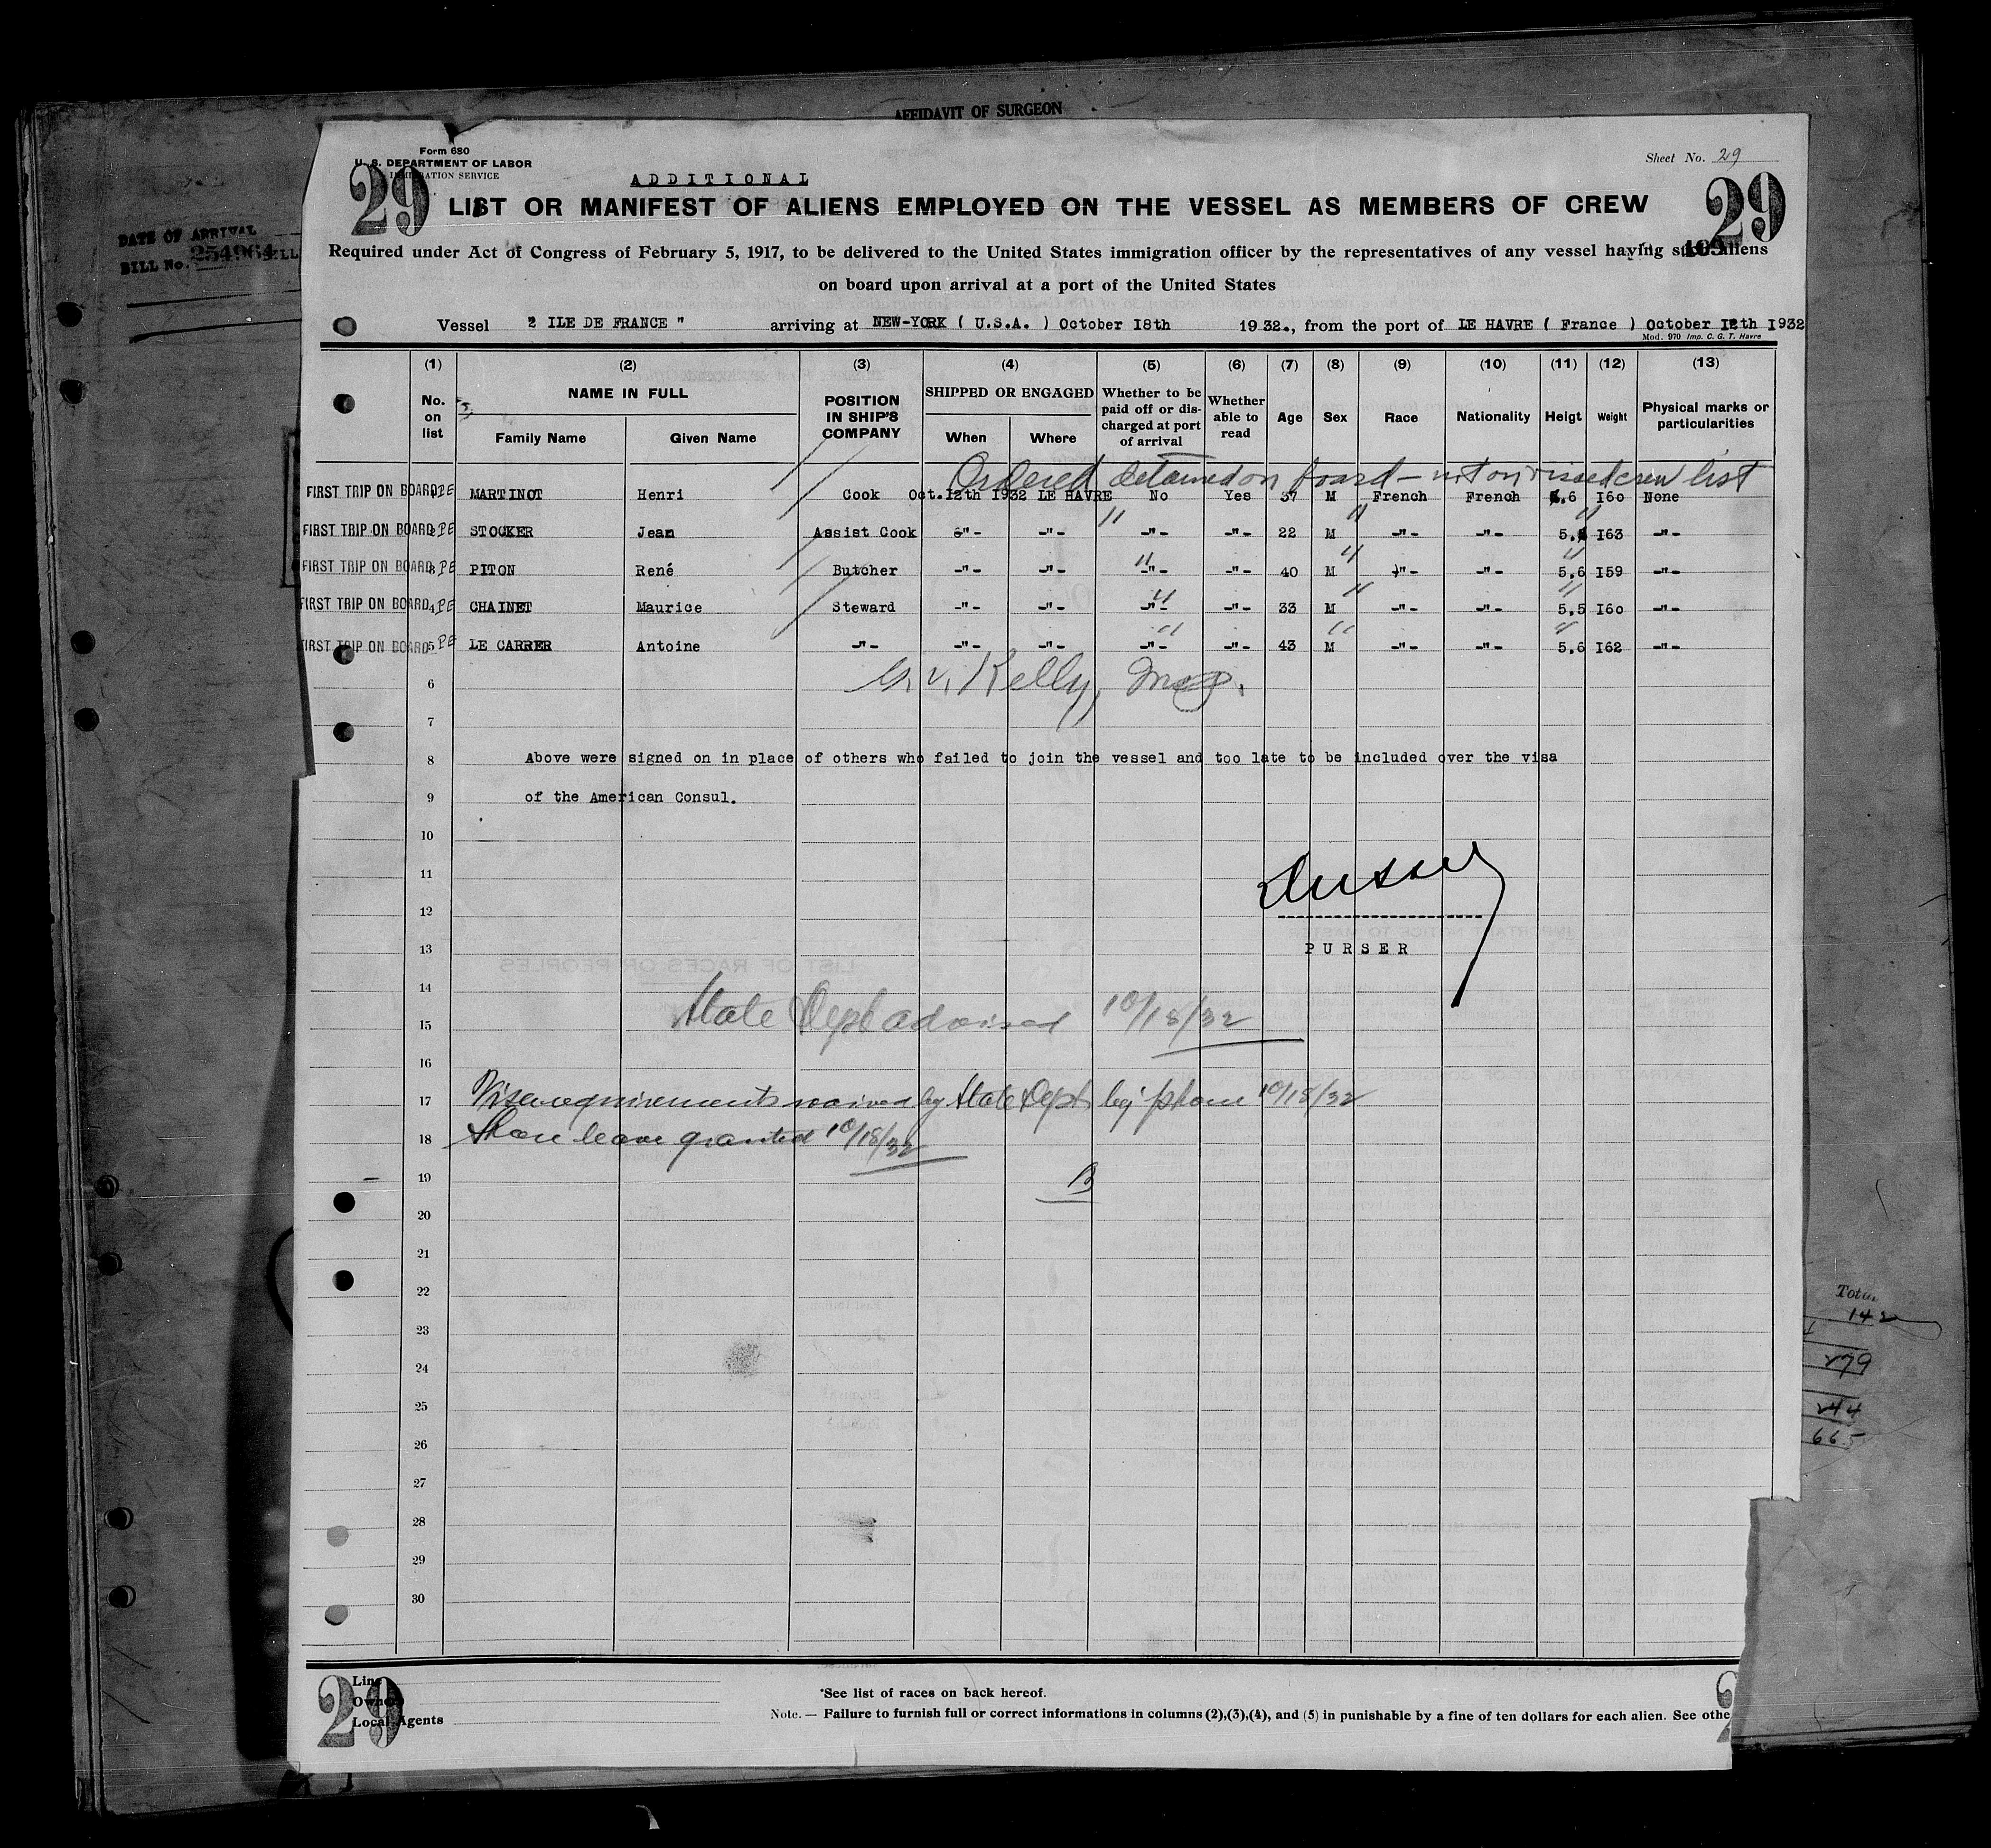 AFFIDAVIT OF SURGEON
Form 680
U. S. DEPARTMENT OF LABOR
IMMIGRATION SERVICE
Sheet No. 29
29
29
ADDITIONAL
LIST OR MANIFEST OF ALIENS EMPLOYED ON THE VESSEL AS MEMBERS OF CREW
DATE OF ARRIVAL
BILL No. 254964
Required under Act of Congress of February 5, 1917, to be delivered to the United States immigration officer by the representatives of any vessel having such aliens
on board upon arrival at a port of the United States
Vessel " ILE DE FRANCE " arriving at NEW-YORK ( U.S.A. ) October I8th 1932., from the port of LE HAVRE ( France ) October I2th I932
Mod. 970 Imp. C. G. T. Havre
(1) (2) (3) (4) (5) (6) (7) (8) (9) (10) (11) (12) (13)
No. on list NAME IN FULL Family Name Given Name POSITION IN SHIP'S COMPANY SHIPPED OR ENGAGED When Where Whether to be paid off or discharged at port of arrival Whether able to read Age Sex Race Nationality Heigt Weight Physical marks or particularities
Ordered detained on board - not on visaed crew list
FIRST TRIP ON BOARD PE MARTINOT Henri Cook Oct.I2th I932 LE HAVRE No Yes 37 M French French 5.6 I60 None
FIRST TRIP ON BOARD 2 PE STOCKER Jean Assist Cook -"- -"- -"- -"- 22 M -"- -"- 5. I63 -"-
FIRST TRIP ON BOARD 3 PE PITON René Butcher -"- -"- -"- -"- 40 M -"- -"- 5.6 I59 -"-
FIRST TRIP ON BOARD 4 PE CHAINET Maurice Steward -"- -"- -"- -"- 33 M -"- -"- 5.5 I60 -"-
FIRST TRIP ON BOARD 5 PE LE CARRER Antoine -"- -"- -"- -"- -"- 43 M -"- -"- 5.6 I62 -"-
6 Kelly, Insp.
7
8 Above were signed on in place of others who failed to join the vessel and too late to be included over the visa
9 of the American Consul.
10
11
12
13 PURSER
14
15 State Dept advised 10/18/32
16
17 Visa requirements waived by State Dept by phone 10/18/32
18 Shore leave granted 10/18/32
19 B
20
21
22
23
24
25
26
27
28
29
30
Total
142
279
244
665
29
Line
Owners
Local Agents
*See list of races on back hereof.
Note. — Failure to furnish full or correct informations in columns (2),(3),(4), and (5) in punishable by a fine of ten dollars for each alien. See othe